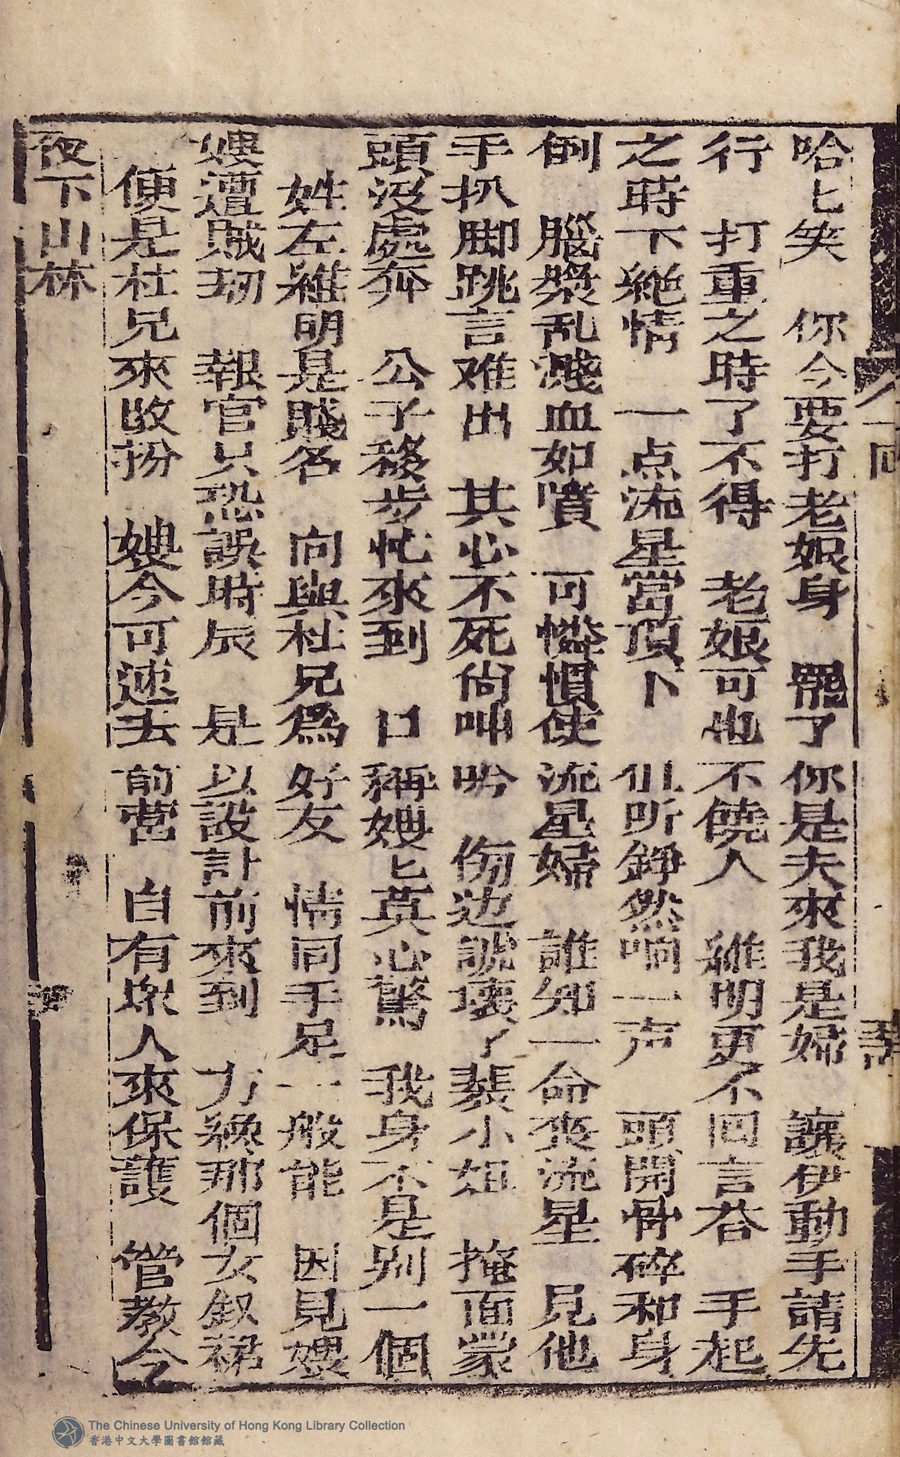 哈匕笑　你今要打老娘身　罷了你是夫來我是婦　讓伊動手請先
行　打重之時了不得　老娘可也不饒人　維明更不回言荅　手起
之時下絕情　一点流星當頂下　但听錚然响一声　頭開骨碎和身
倒　腦漿乱濺血如噴　可憐慣使流星婦　誰知一命喪流星　見他
手扒脚跳言难出　其心不死尙呻吟　傍边諕壞了裴小姐　掩面蒙
頭沒處奔　公子移步忙來到　口稱嫂匕莫心驚　我身不是別一個
姓左維明是賤名　向與杜兄爲好友　情同手足一般能　因見嫂
嫂遭賊刼　報官只恐誤時辰　是以設計前來到　方纔那個女釵裙
便是杜兄來改扮　嫂今可速去前營　自有衆人來保護　管教今
夜下山林